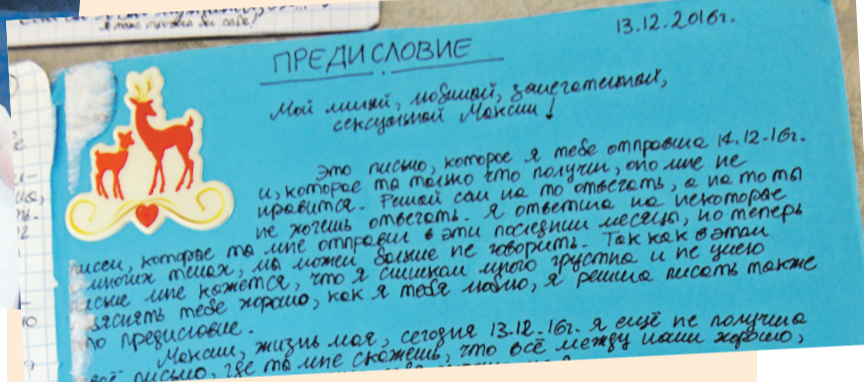 Я тоже
13.12.2016г.
ПРЕДИСЛОВИЕ
Мой милый, любимый, замечательный,
сексуальный Максим!
Это письмо, которое я тебе отправила 14.12.16г.
и, которое ты только что получил, оно мне не
нравится. Решай сам на то отвечать, а на то ты
не хочешь отвечать. Я ответила на некоторые
писем, которые ты мне отправил в эти последнии месяцы, но теперь
многих темах, мы можем больше не говорить. Так как в этом
письме мне кажется, что я слишком много грустна и не умею
яснять тебе хорошо, как я тебя люблю, я решила писать также
это предисловие.
Максим, жизнь моя, сегодня 13.12.16г. я ещё не получила
твоё письмо, где ты мне скажешь, что всё между нами хорошо,